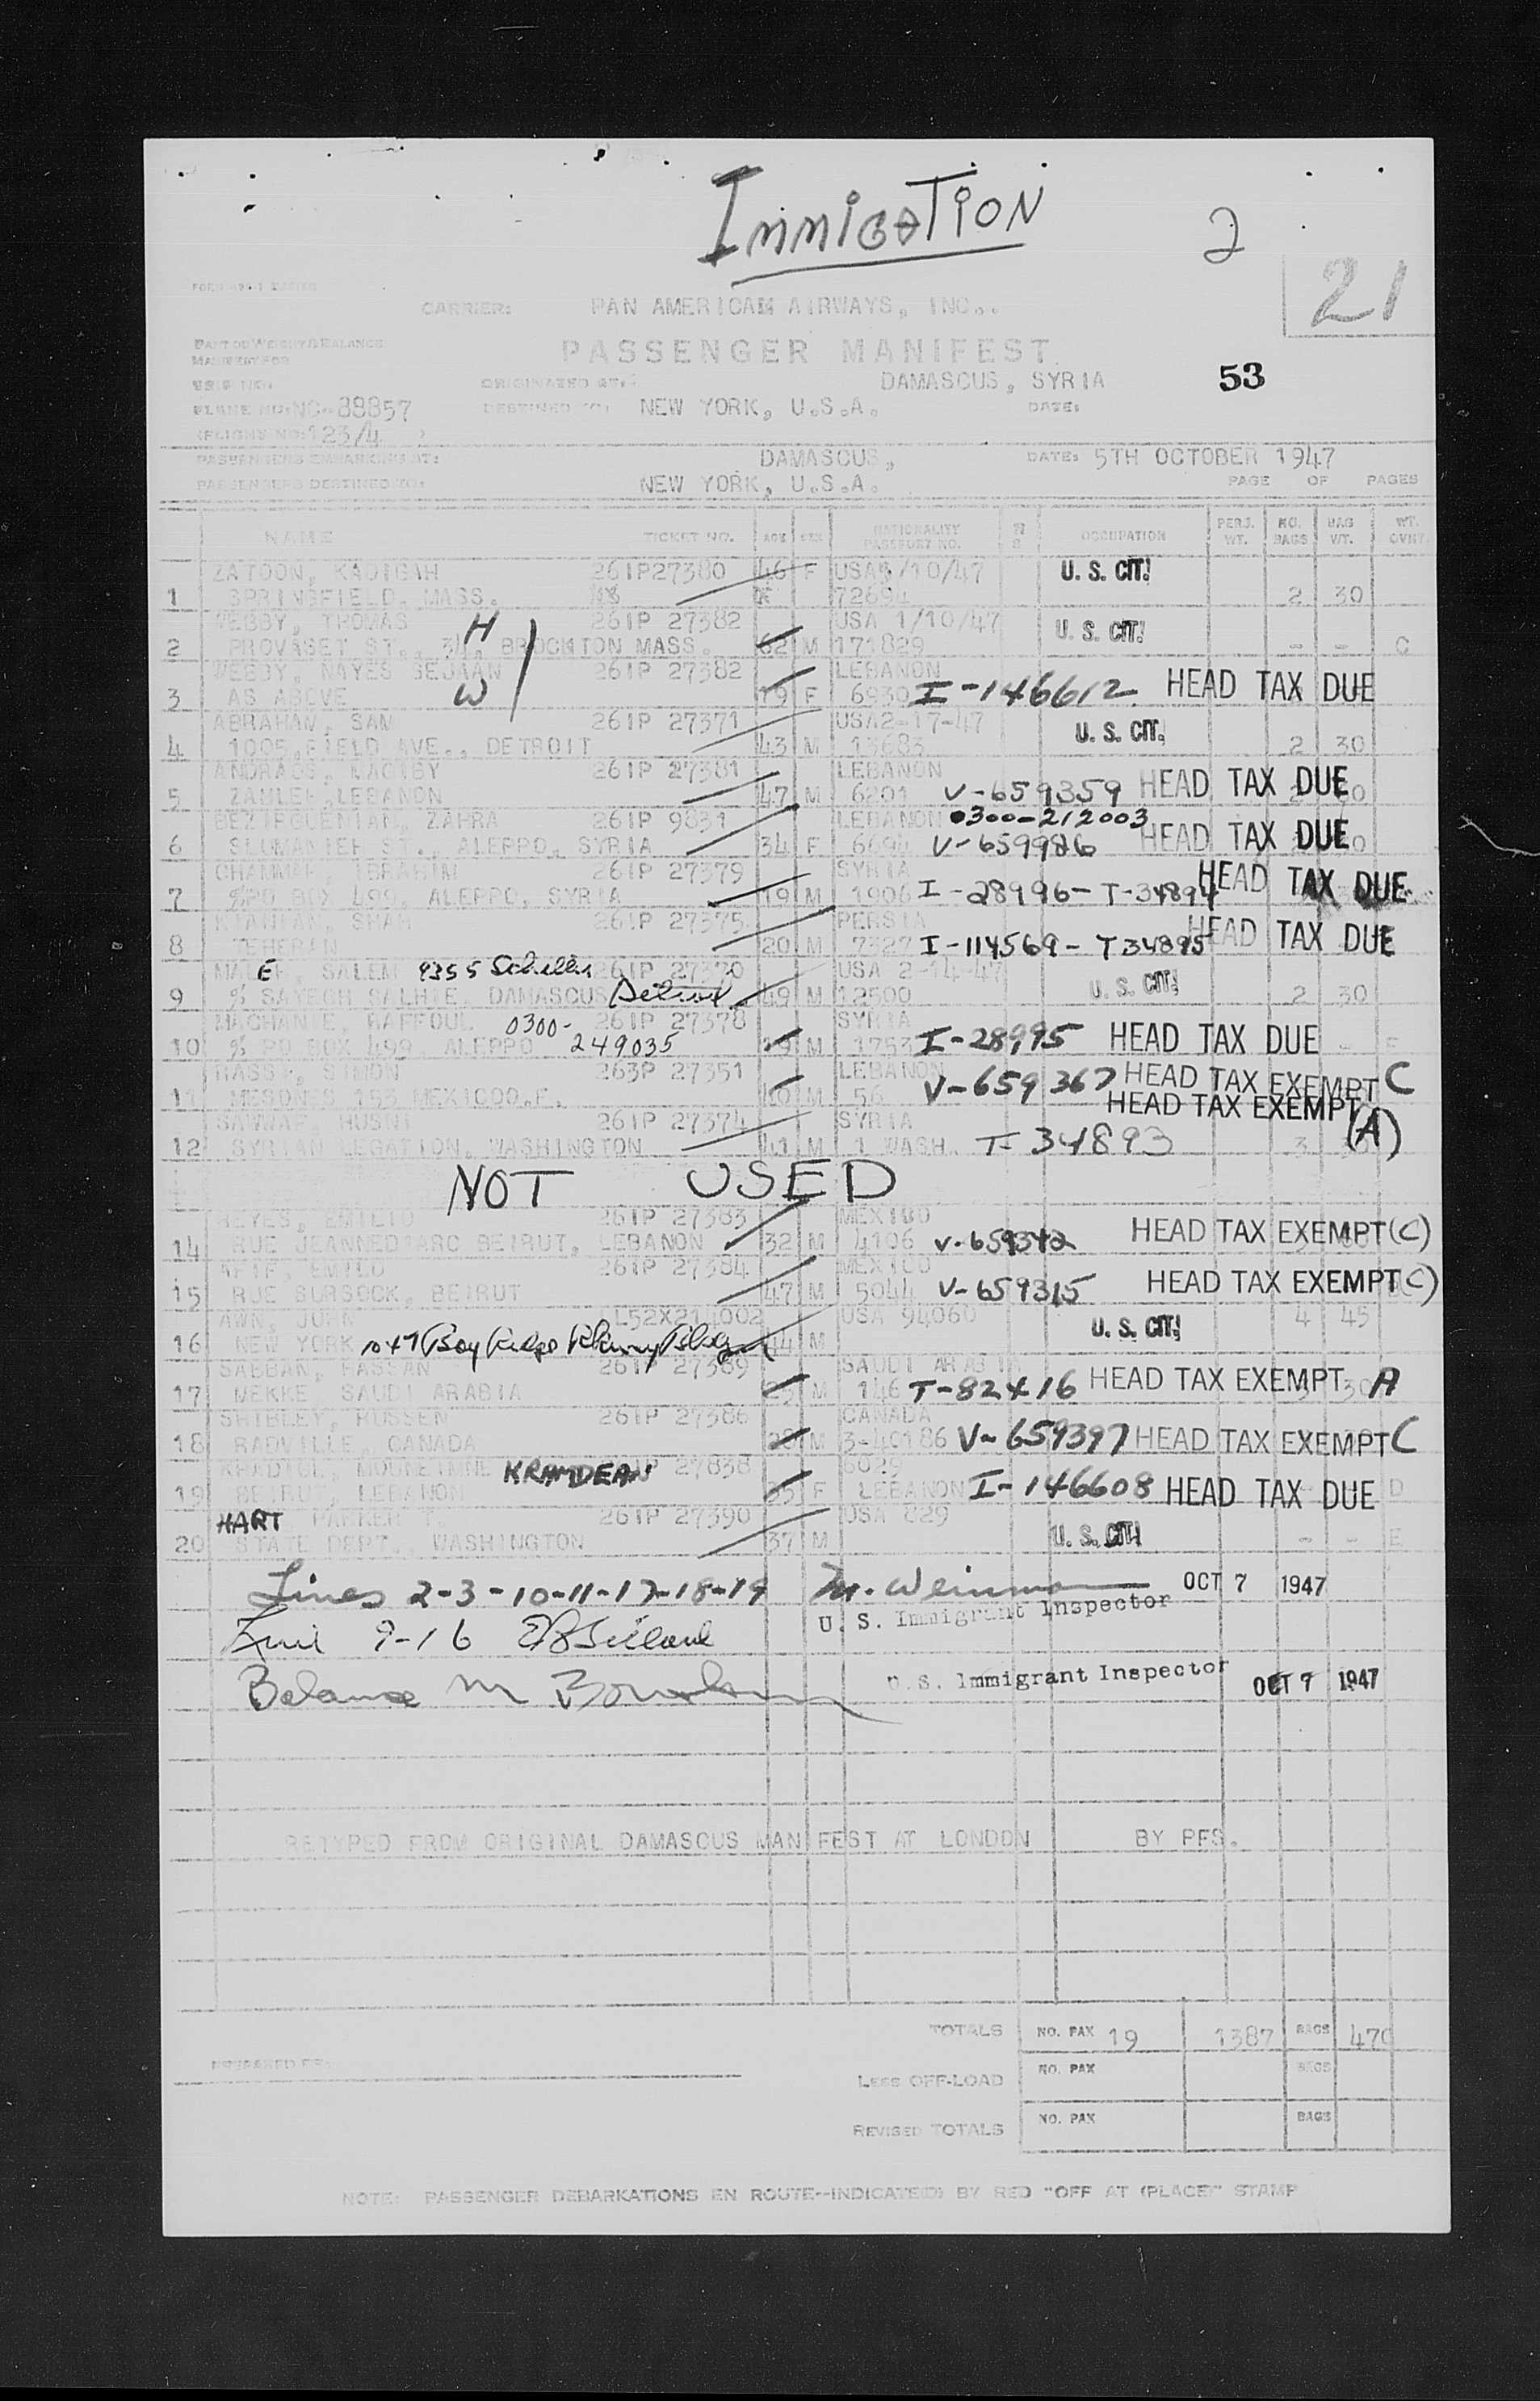 IMMIGATION
2
21
CARRIER: PAN AMERICAN AIRWAYS, INC..
PART OF WEIGHT & BALANCE
MANIFEST FOR
PASSENGER MANIFEST
53
ORIGINATED AT: DAMASCUS, SYRIA
PLANE NO: NC-88857 DESTINED TO: NEW YORK, U.S.A. DATE:
(FLIGHT NO: 123/4 )
PASSENGERS EMBARKING AT: DAMASCUS, DATE: 5TH OCTOBER 1947
PASSENGERS DESTINED TO: NEW YORK, U.S.A. PAGE OF PAGES
NAME TICKET NO. AGE SEX NATIONALITY PASSPORT NO. OCCUPATION PERS. WT. NO. BAGS BAG WT. WT. OVHT
ZATOON, KADIGAH 261P27380 46 F USA /10/47 U. S. CIT.
1 SPRINGFIELD, MASS. 72694 2 30
WEBBY, THOMAS H 261P 27382 USA 1/10/47 U. S. CIT.
2 PROVASET ST. 34, BROCKTON MASS. 62 M 171829 - - C
WEBBY, NAYES 261P 27382 LEBANON
3 AS ABOVE W 19 F 6930 I-146612 HEAD TAX DUE
ABRAHAM, SAM 261P 27371 USA 2-17-47 U. S. CIT.
4 1005, FIELD AVE., DETROIT 43 M 13683 2 30
261P 27381 LEBANON
5 ZAHLEH, LEBANON 47 M 6201 V-659359 HEAD TAX DUE
BEZIRGUENIAN, ZAHRA 261P 9831 LEBANON 0300-212003
6 ST., ALEPPO, SYRIA 34 F 6694 V-659986 HEAD TAX DUE
IBRAHIM 261P 27379 SYRIA
7 %PO BOX 499, ALEPPO, SYRIA 19 M 1906 I-28996-T-34894 HEAD TAX DUE
261P 27375 PERSIA
8 TEHERAN 20 M 7327 I-114569-T34895 HEAD TAX DUE
E SALEM 9355 261P 27370 USA 2-14-47 U. S. CIT.
9 % SAYEGH SALHIE, DAMASCUS Detroit 49 M 12500 2 30
RAFFOUL 0300- 261P 27378 SYRIA
10 % PO BOX 499 ALEPPO 249035 M 1753 I-28995 HEAD TAX DUE - E
SIMON 263P 27351 LEBANON
11 MEXICO D.F. 40 M 56 V-659367 HEAD TAX EXEMPT C
SAWWAF, HUSNI 261P 27374 SYRIA HEAD TAX EXEMPT (A)
12 SYRIAN LEGATION, WASHINGTON 41 M 1 WASH. T-34893 3
NOT USED
REYES, EMILIO 261P 27383 MEXICO
14 RUE JEANNEDIARC BEIRUT, LEBANON 32 M 4106 V-659342 HEAD TAX EXEMPT (C)
AFIF, EMILO 261P 27384 MEXICO
15 RUE SURSOCK, BEIRUT 47 M 5044 V-659315 HEAD TAX EXEMPT (C)
AWN, JOHN LL52X214002 USA 94060 4 45
16 NEW YORK 1047 Bay Ridge Pkway Bklyn 44 M U. S. CIT.
SABBAN, HASSAN 261P 27389 SAUDI ARABIA
17 MEKKE, SAUDI ARABIA 25 M 146 T-82416 HEAD TAX EXEMPT 30 A
SHIBLEY, HUSSEN 261P 27386 CANADA
18 RADVILLE, CANADA 28 M 3-40186 V-659397 HEAD TAX EXEMPT C
KRAMDEAN 27838 6029
19 BEIRUT, LEBANON 35 F LEBANON I-146608 HEAD TAX DUE D
HART PARKER T. 261P 27390 USA 829
20 STATE DEPT. WASHINGTON 37 M U. S. CIT. - - E
Lines 2-3-10-11-17-18-19 M. Weinman OCT 7 1947
U. S. Immigrant Inspector
9-16
Balance M
U.S. Immigrant Inspector OCT 7 1947
RETYPED FROM ORIGINAL DAMASCUS MANIFEST AT LONDON BY PFS.
TOTALS NO. PAX 19 1387 BAGS 470
PREPARED BY:
LESS OFF-LOAD NO. PAX BAGS
REVISED TOTALS NO. PAX BAGS
NOTE: PASSENGER DEBARKATIONS EN ROUTE--INDICATED BY RED "OFF AT (PLACE)" STAMP